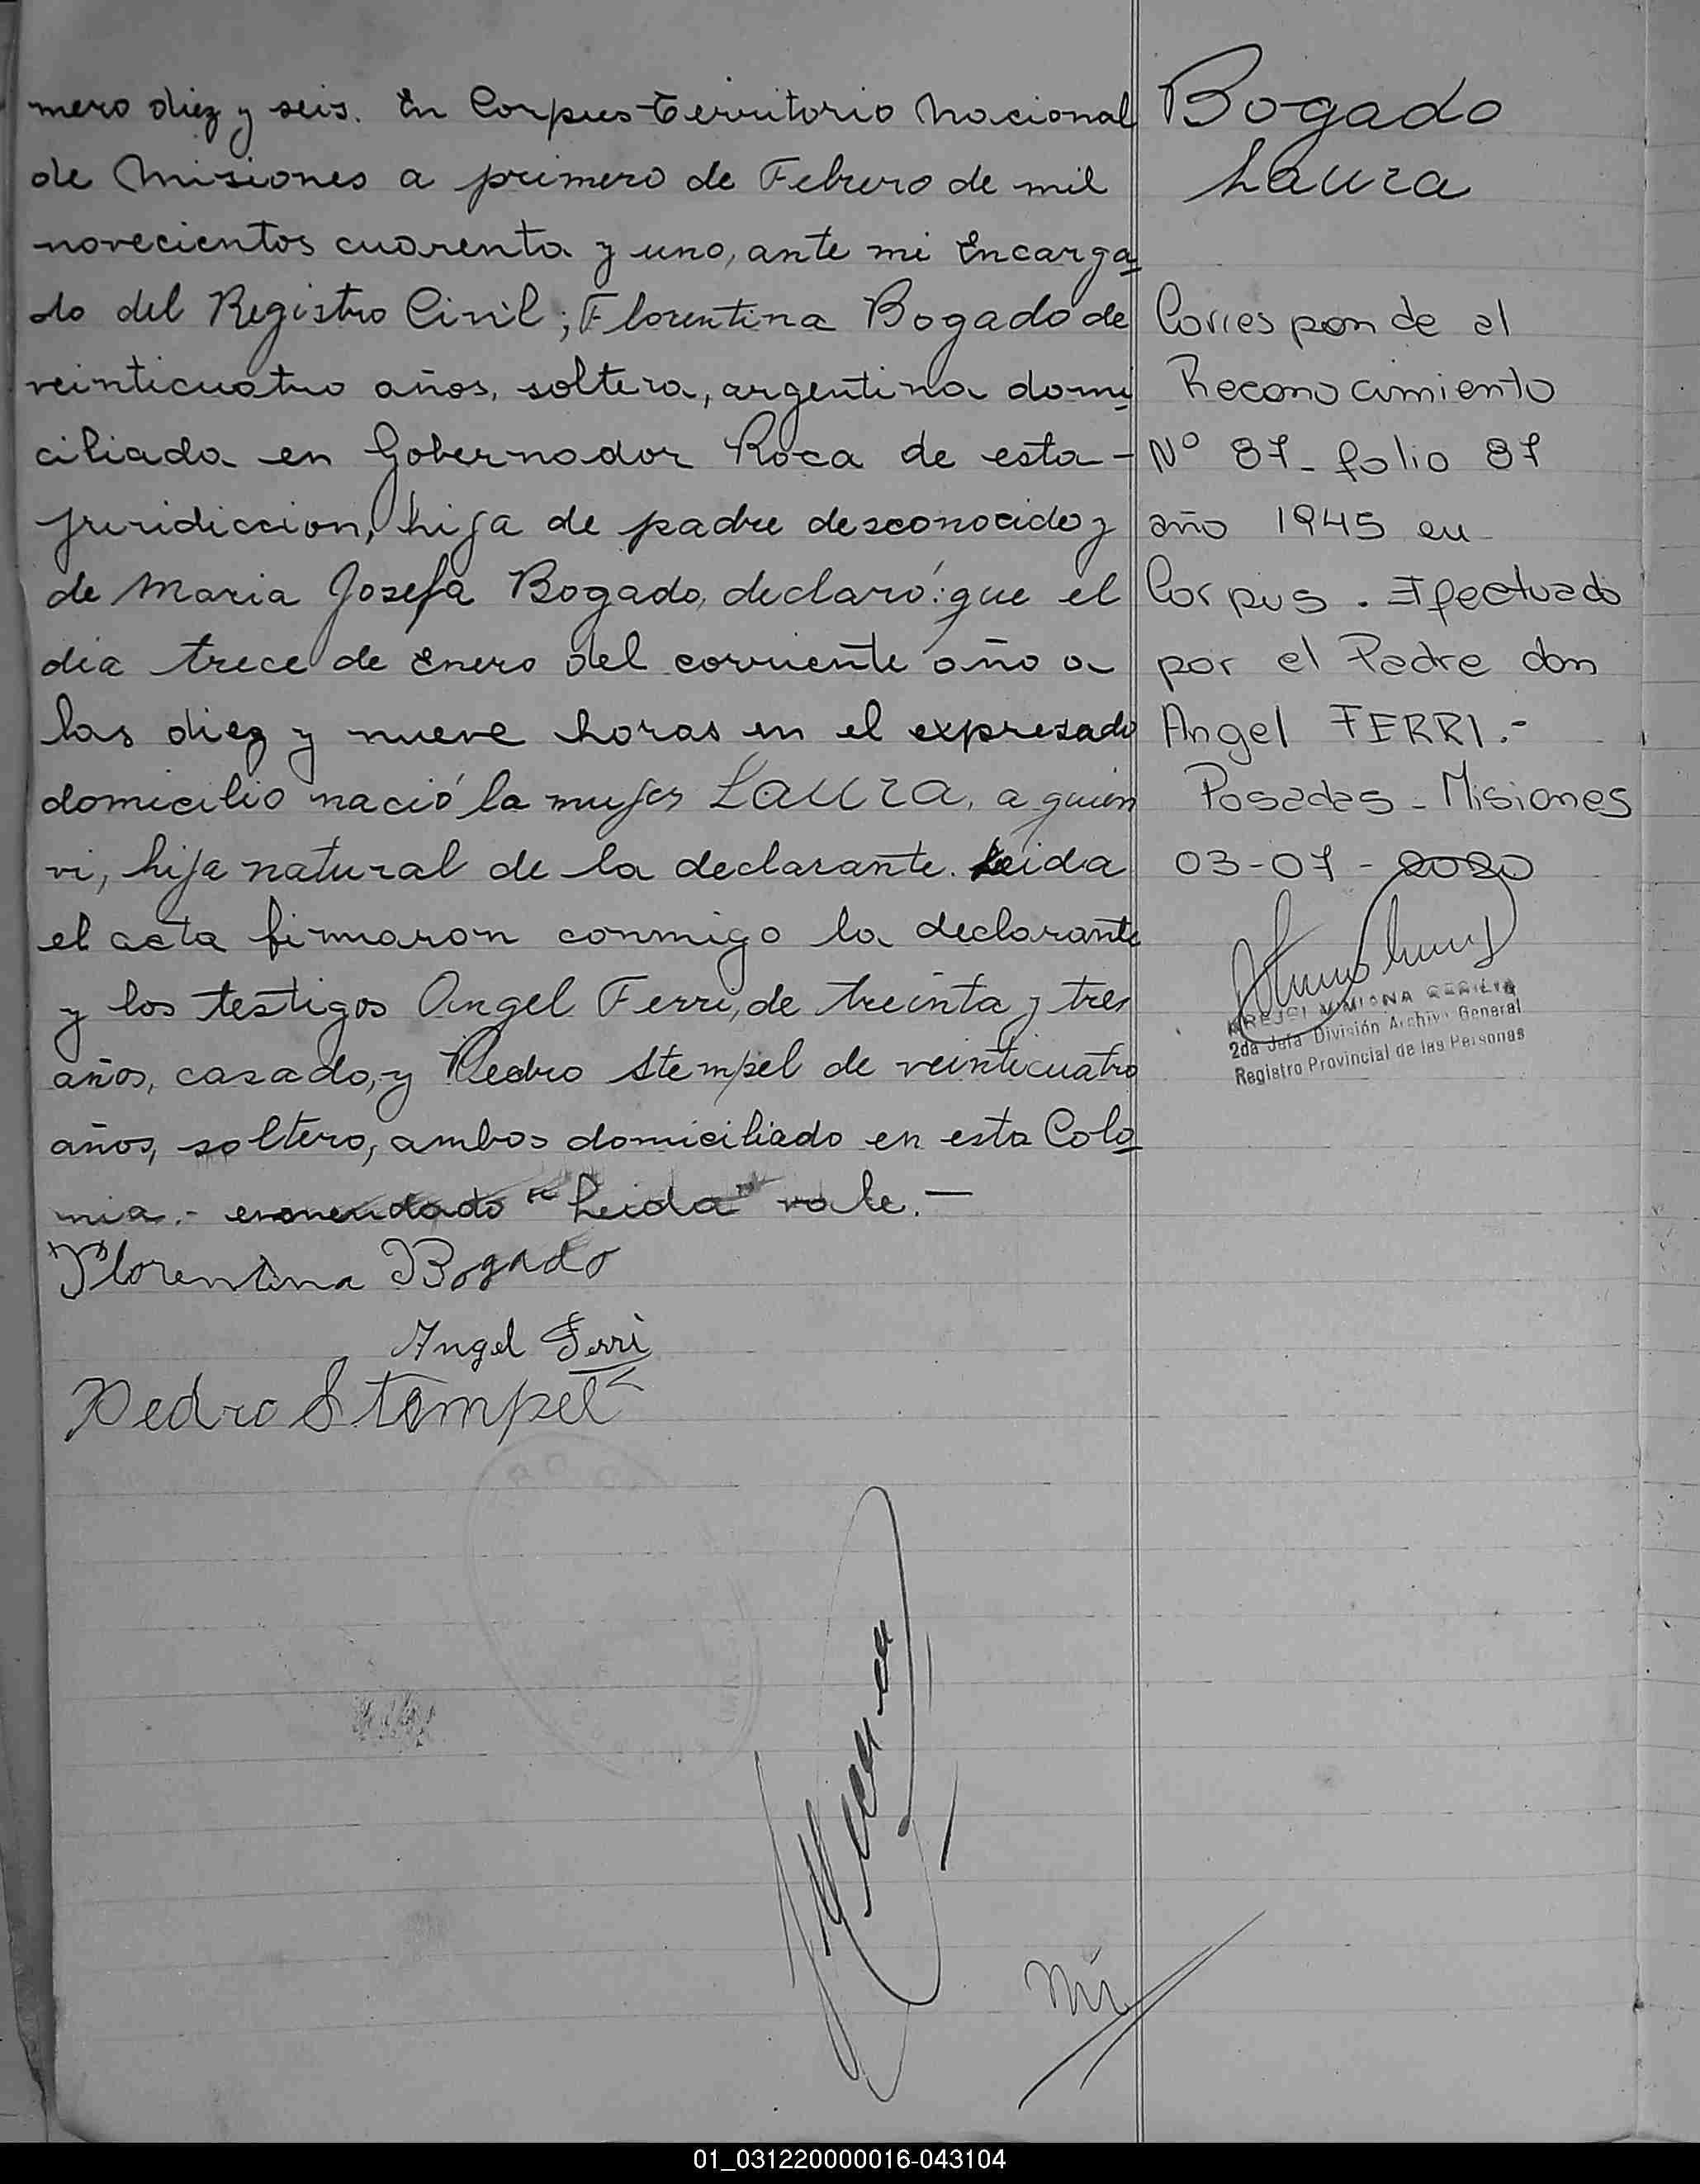 mero diez y seis. En Corpus-Territorio Nacional
de Misiones a primero de Febrero de mil
novecientos cuarenta y uno, ante mi Encarga
do del Registro Civil; Florentina Bogado de
veinticuatro años, soltera, argentina domi
ciliada en Gobernador Roca de esta-
juridiccion, hija de padre desconocido y
de Maria Josefa Bogado, declaró: que el
dia trece de Enero del corriente año a
las diez y nueve horas en el expresado
domicilio nació la mujer LAURA, a quien
vi, hija natural de la declarante. Leida
el acta firmaron conmigo la declarante
y los testigos Angel Ferri, de treinta y tres
años, casado, y Pedro Stempel de veinticuatro
años, soltero, ambos domiciliado en esta Colo
nia.- enmendado "Leida" vale.-
Florentina Bogado
Angel Ferri
Pedro Stempel
Bogado
Laura
Corresponde al
Reconocimiento
Nº 87- folio 87
año 1945 en
Corpus. Efectuado
por el Padre don
Angel FERRI.-
Posadas - Misiones
03-07-2020
2da Jefa División Archivo General
Registro Provincial de las Personas
01_031220000016-043104